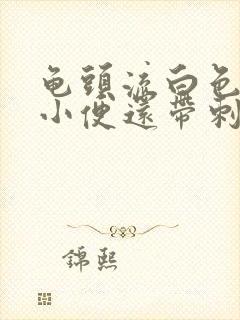 龟頭流白色
小便還帶刺
錦熙